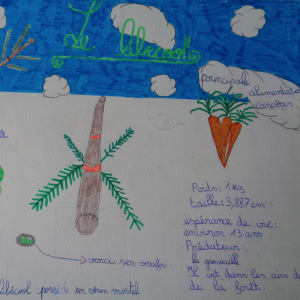 Le Abicool
principale
alimentation
carottes
Poids: 1 Kg
taille: 3,887 cm
espérance de vie:
environ 13 ans
Prédateur:
la grenouille
Il vit dans les
de la forêt
voici ses oeufs
Abicool possède un
mortel